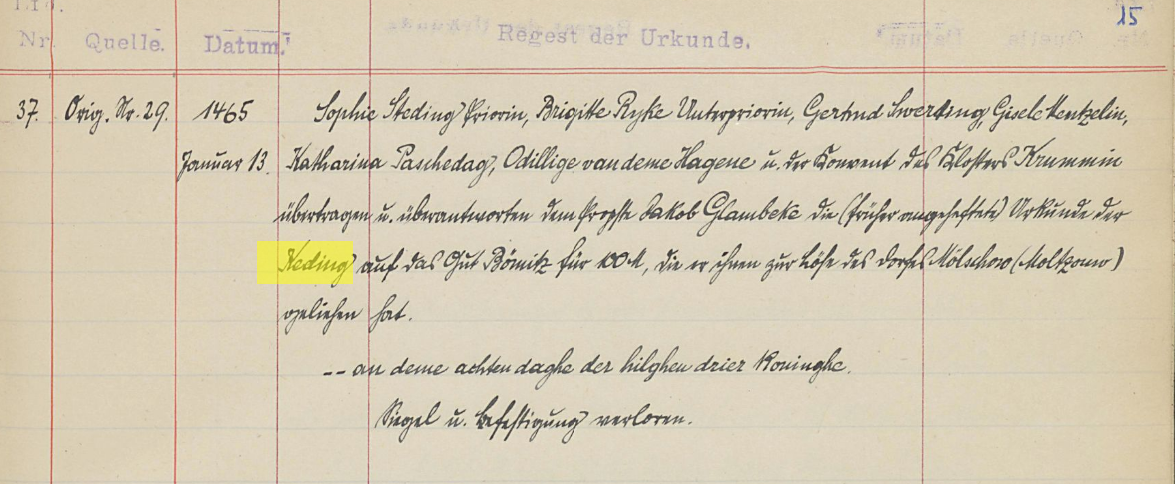 15
Lfd.
Nr. Quelle. Datum. Regest der Urkunde.
37. Orig. Nr. 29. 1465 Sophie Steding Priorin, Brigitte Ryke Unterpriorin, Gertrud Swerting, Gisele Mentzelin,
Januar 13. Katharina Paschedag, Odillige van deme Hagene u. der Konvent des Klosters Krummin
übertragen u. überantworten dem Propste Jakob Glambeke die (früher angeheftete) Urkunde der
Keding auf das Gut Bömitz für 100 M, die er ihnen zur Löse des Dorfes Mölschow (Moltzow)
geliehen hat.
-- an deme achten daghe der hilghen drier Koninghe.
Siegel u. Befestigung verloren.